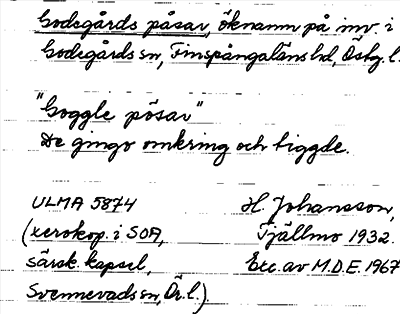 Godegårds påsar, öknamn på inv. i
Godegårds sn, Finspångaläns hd, Östg.l.
"Goggle påsar"
De gingo omkring och tiggde.
ULMA 5874 H. Johansson,
(xerokop. i SOA, Tjällmo 1932.
särsk. kapsel, Exc. av M.D.E. 1967
Svennevads sn, Ör.l.).